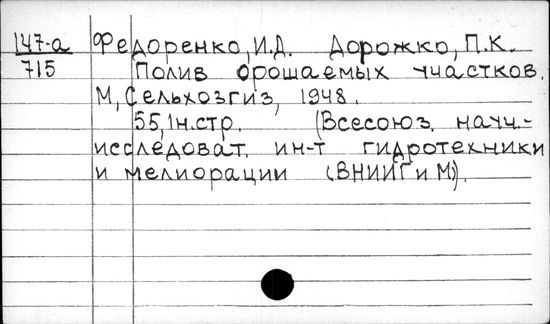 147-а Федоренко, И.Д. Дорожко, П.К.
715 Полив орошаемых участков.
М, Сельхозгиз, 1948.
55,1н.стр. (Всесоюз. научн.-
исследоват. ин-т гидротехники
и мелиорации (ВНИИГиМ).